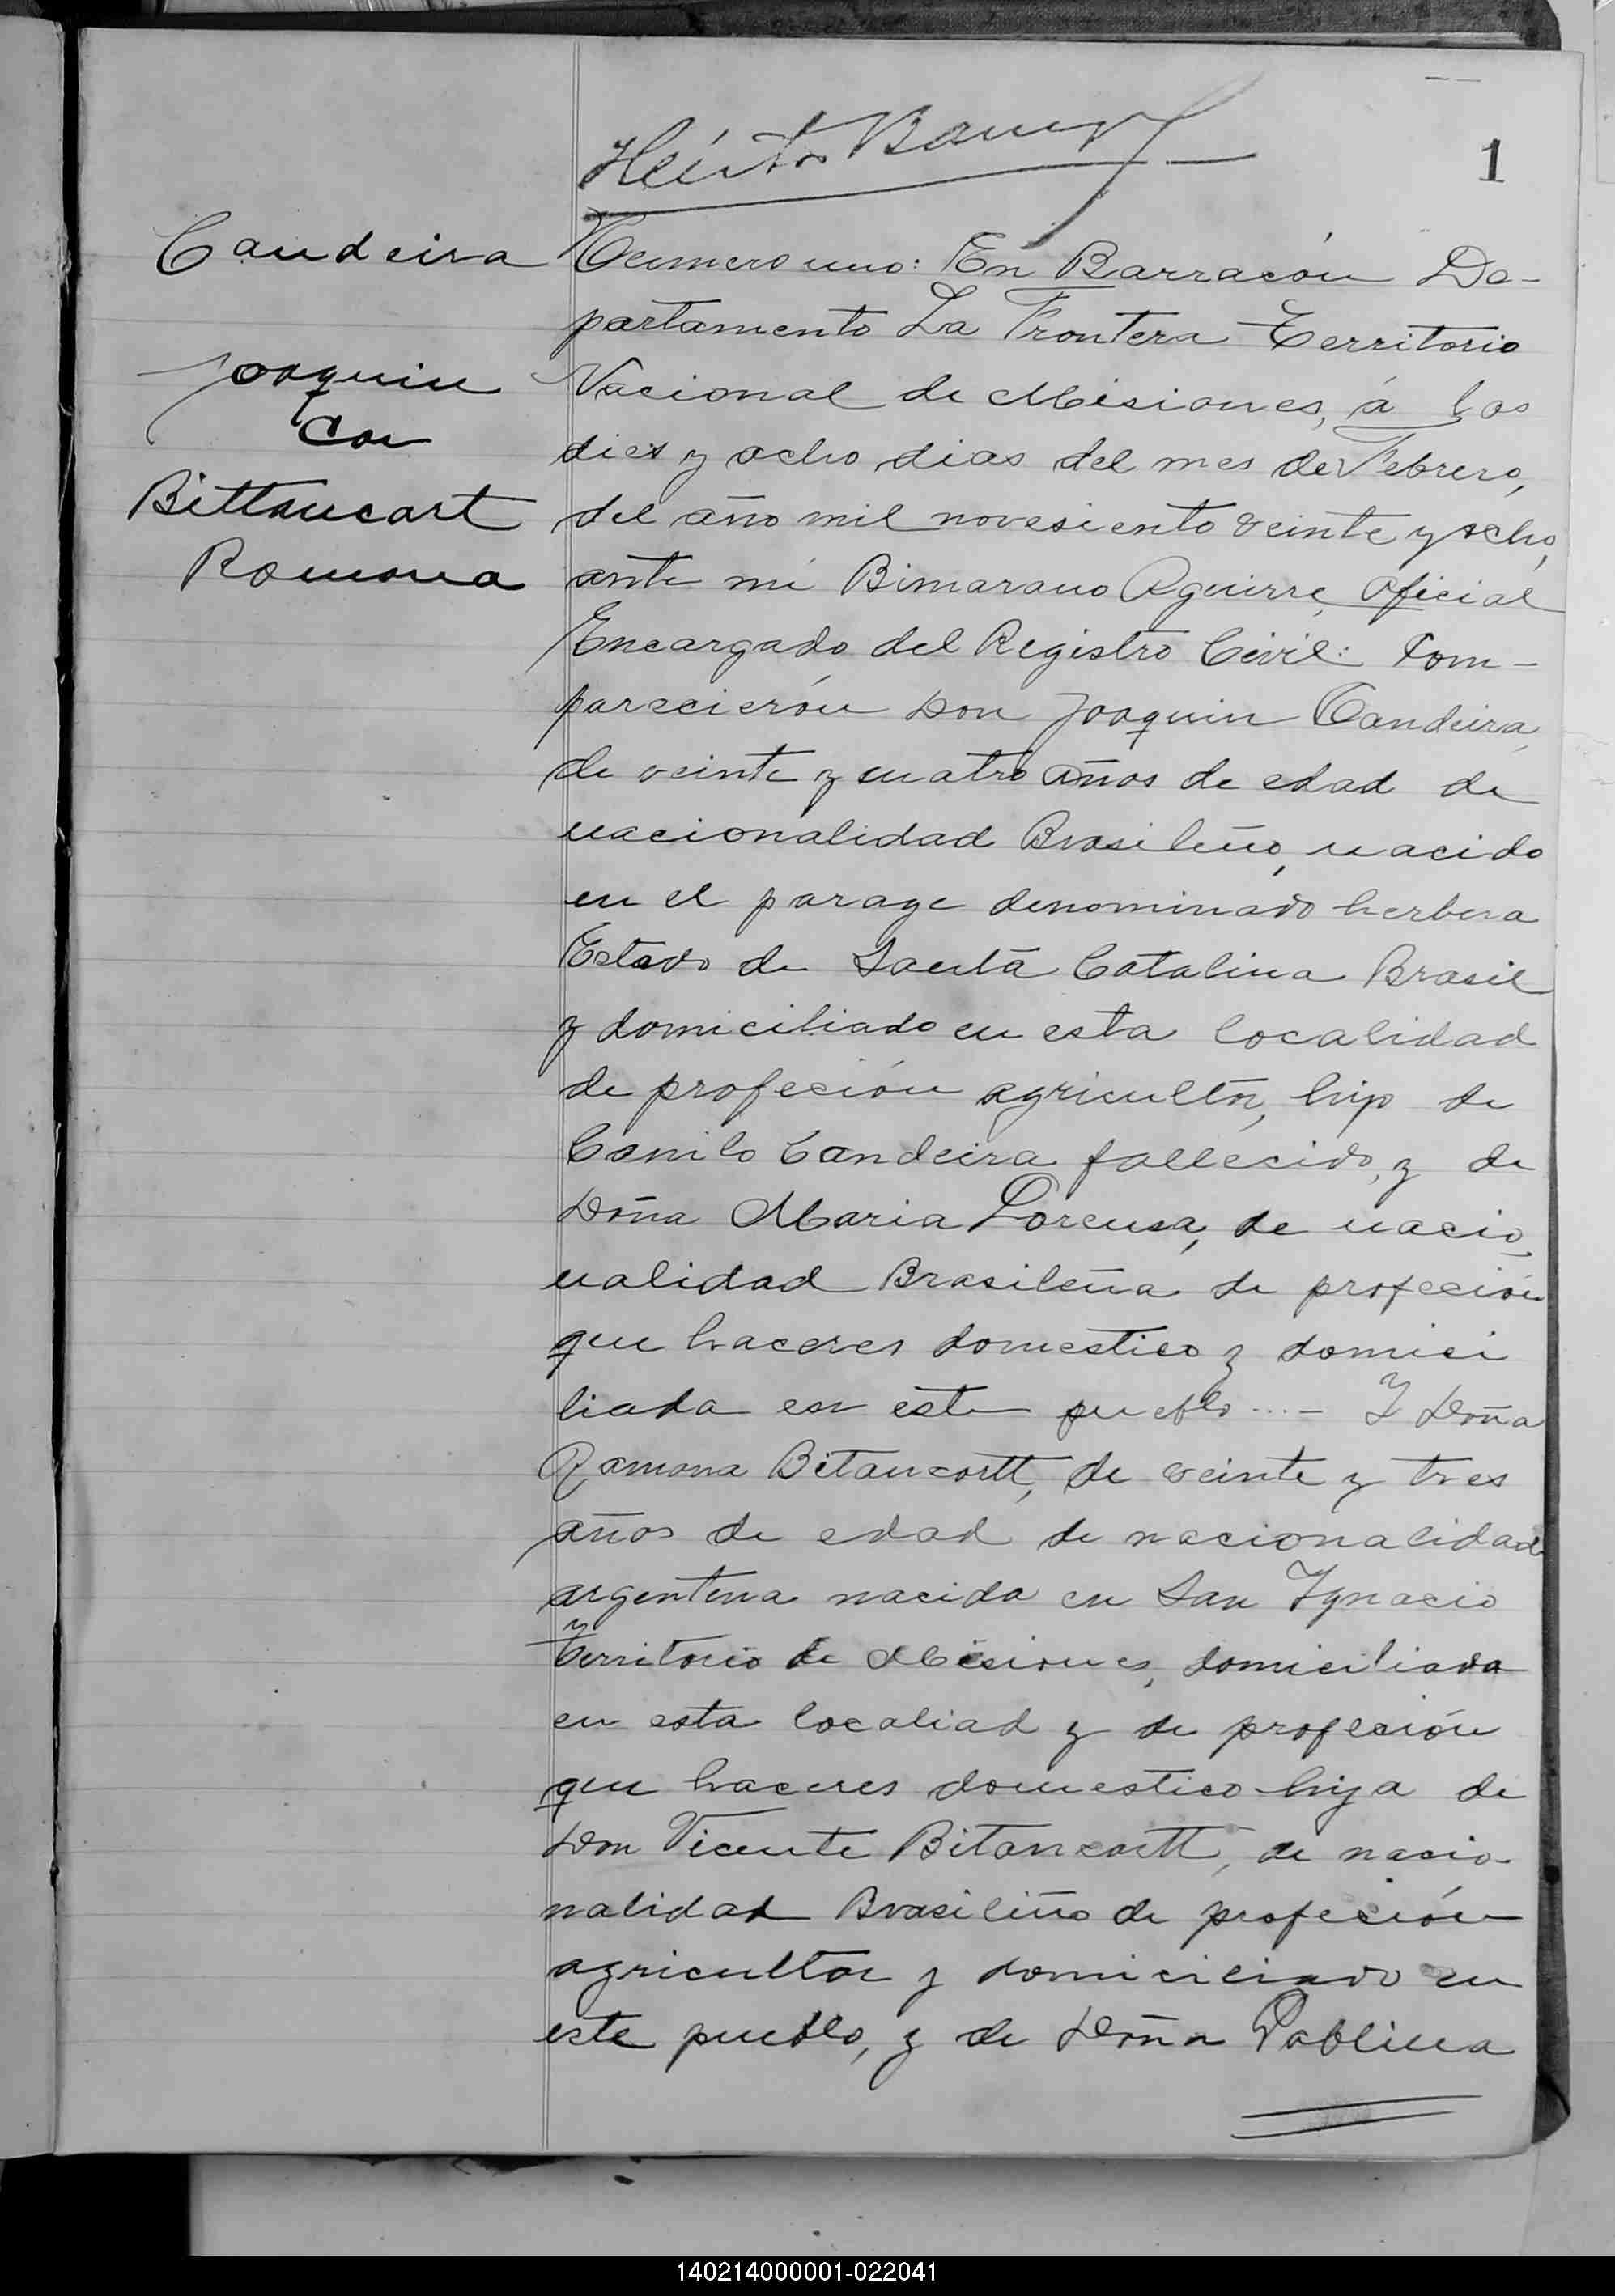 1
Candeira
Joaquin
Con
Bittancort
Romona
Numero uno: En Barracón De-
partamento La Frontera Territorio
Nacional de Misiones, á los
dies y ocho dias del mes de Febrero,
del año mil novesiento veinte y ocho,
ante mi Bimarano Aguirre, oficial
Encargado del Registro Civil: Com-
paracierón Don Joaquin Candeira,
de veinte y cuatro años de edad de
nacionalidad Brasileño, nacido
en el parage denominado herbera
Estado de Santa Catalina Brasil
y domiciliado en esta localidad
de profeción agricultor, hijo de
Camilo Candeira fallecido, y de
Doña Maria Lorensa, de nacio
nalidad Brasileña de profeción
que haceres domestico y domici
liada en este pueblo...- Y Doña
Ramona Bitancortt, de veinte y tres
años de edad de nacionalidad
argentina nacida en San Ygnacio
Territorio de Misiones, domiciliada
en esta localiad y de profeción
que haceres domestico hija de
Don Vicente Bitancortt, de nacio-
nalidad Brasileño de profeción
agricultor y domiciliado en
este pueblo, y de Doña Pablina
140214000001-022041